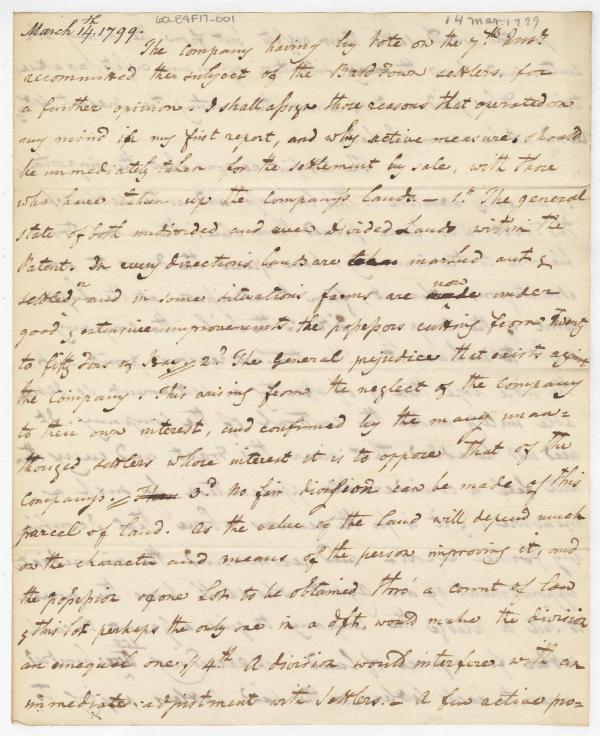 March 14.th 1799.
60-E9F17-001
14 Mar. 1799
The Company having by Vote on the 7.th Inst.
recommitted the subject of the Bald Town settlers, for
a further opinion. I shall assign those reasons that operated on
my mind in my first report, and why active measures should
be immediately taken for the settlement by sale, with those
who have taken up the Company's lands. — 1.st The general
state of both undivided and even divided Lands within the
Patent. In every direction lands are taken marked out &
settled on and in some situations farms are now under
good & extensive improvements the possessors cutting from twenty
to fifty tons of Hay // 2.d The General prejudice that exists against
the Company. This arising from the neglect of the Company
to their own interest, and confirmed by the many unau=
thorized settlers whose interest it is to oppose that of the
Company. // 3.d No fair division can be made of this
parcel of land. As the value of the land will depend much
on the character and means of the person improving it, and
the possession of one Lot to be obtained thro' a court of law
& this lot perhaps the only one in a dft. would make the division
an unequal one // 4.th A division would interfere with an
immediate adjustment with Settlers. — A few active po=